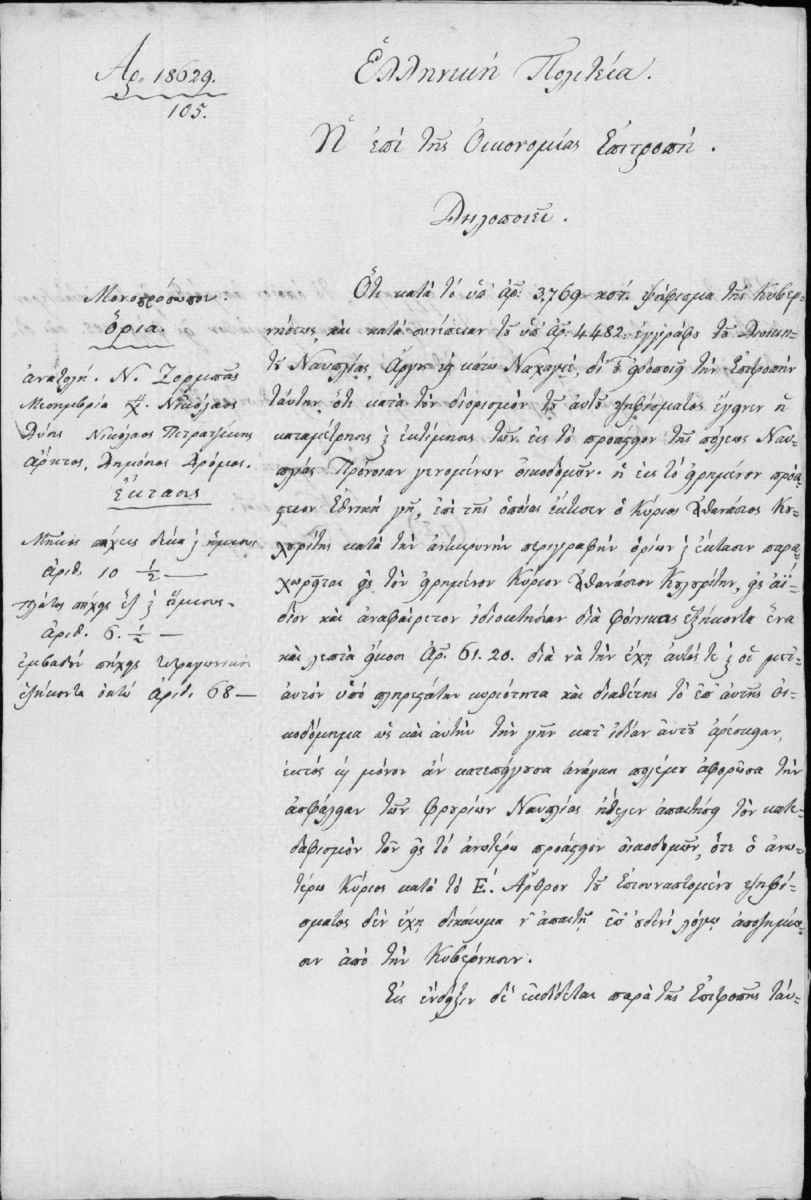 Ἀρ. 18629.
105.
Ἑλληνική Πολιτεία.
Ἡ ἐπί τῆς Οἰκονομίας Ἐπιτροπή.
Δηλοποιεῖ.
Μονοπρόσωπον.
Ὅρια.
ἀνατολή. Ν. Ζορμπᾶς
Μεσημβρία Νικόλαος
Δύσις Νικόλαος Πετρατζίνης
ἄρκτος, Δημόσιος Δρόμος.
Ἔκτασις
Μῆκος πήχεις δέκα ἥμισυς
ἀριθ. 10 1/2 —
πλάτος πήχεις ἕξ ἥμισυς.
ἀριθ. 6. 1/2 —
ἐμβαδόν πήχεις τετραγωνικαί
ἑξήκοντα ὀκτώ ἀριθ. 68 —
Ὅτι κατά τό ὑπ' ἀρ: 3,769 ψήφισμα τῆς Κυβερ-
νήσεως, καί κατά συνέπειαν τοῦ ὑπ' ἀρ. 4482. ἐγγράφου τοῦ Διοικη-
τοῦ Ναυπλίας, Ἄργους καί κάτω Ναχαγιέ, δι' οὗ εἰδοποιεῖ τήν Ἐπιτροπήν
ταύτην, ὅτι κατά τόν διορισμόν τοῦ αὐτοῦ ψηφίσματος ἔγινεν ἡ
καταμέτρησις καί ἐκτίμησις τῶν εἰς τό προάστειον τῆς πόλεως Ναυ-
πλίας Πρόνοιαν γενομένων οἰκοδομῶν. ἡ εἰς τό εἰρημένον προά-
στειον Ἐθνική γῆ, ἐπί τῆς ὁποίας ἔκτισεν ὁ Κύριος Ἀθανάσιος
κατά τήν ἀντικρυνήν περιγραφήν ὁρίων καί ἔκτασιν παρα-
χωρεῖται εἰς τόν εἰρημένον Κύριον Ἀθανάσιον εἰς ἀΐ-
διον καί ἀναφαίρετον ἰδιοκτησίαν διά φοίνικας ἑξήκοντα ἕνα
καί λεπτά εἴκοσι Ἀρ. 61.20. διά νά τήν ἔχῃ αὐτός τε καί οἱ μετ'
αὐτόν ὑπό πληρεστάτην κυριότητα καί διαθέτῃς τό ἐπ' αὐτῆς οἰ-
κοδόμημα ὡς καί αὐτήν τήν γῆν κατ' ἰδίαν αὐτοῦ ἀρέσκειαν,
ἐκτός εἰ μόνον ἄν κατεπείγουσα ἀνάγκη πολέμου ἀφορῶσα τήν
ἀσφάλειαν τῶν φρουρίων Ναυπλίας ἤθελεν ἀπαιτήσῃ τόν κατε-
δαφισμόν τῶν εἰς τό ἀνωτέρω προάστειον οἰκοδομῶν, ὅτε ὁ ἀνω-
τέρω Κύριος κατά τό Ε΄. Ἄρθρον τοῦ ἐπισυναπτομένου ψηφί-
σματος δέν ἔχῃ δικαίωμα ν' ἀπαιτῇ ἐπ' οὐδενί λόγῳ ἀποζημίω-
σιν ἀπό τήν Κυβέρνησιν.
Εἰς ἔνδειξιν δέ ἐκδίδεται παρά τῆς Ἐπιτροπῆς ταύ-